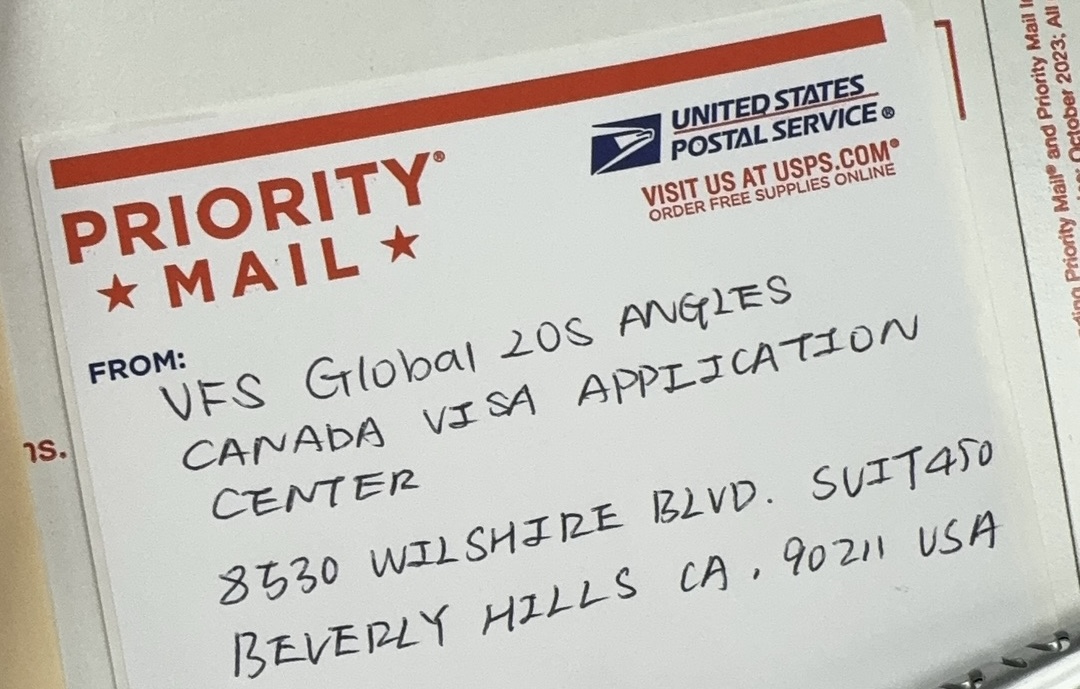 UNITED STATES
POSTAL SERVICE®
VISIT US AT USPS.COM®
ORDER FREE SUPPLIES ONLINE
PRIORITY®
MAIL
FROM:
VFS Global LOS ANGLES
CANADA VISA APPLICATION
CENTER
8530 WILSHIRE BLVD. SUIT450
BEVERLY HILLS CA, 90211 USA
ns.
Priority Mail® and Priority Mail
October 2023; All